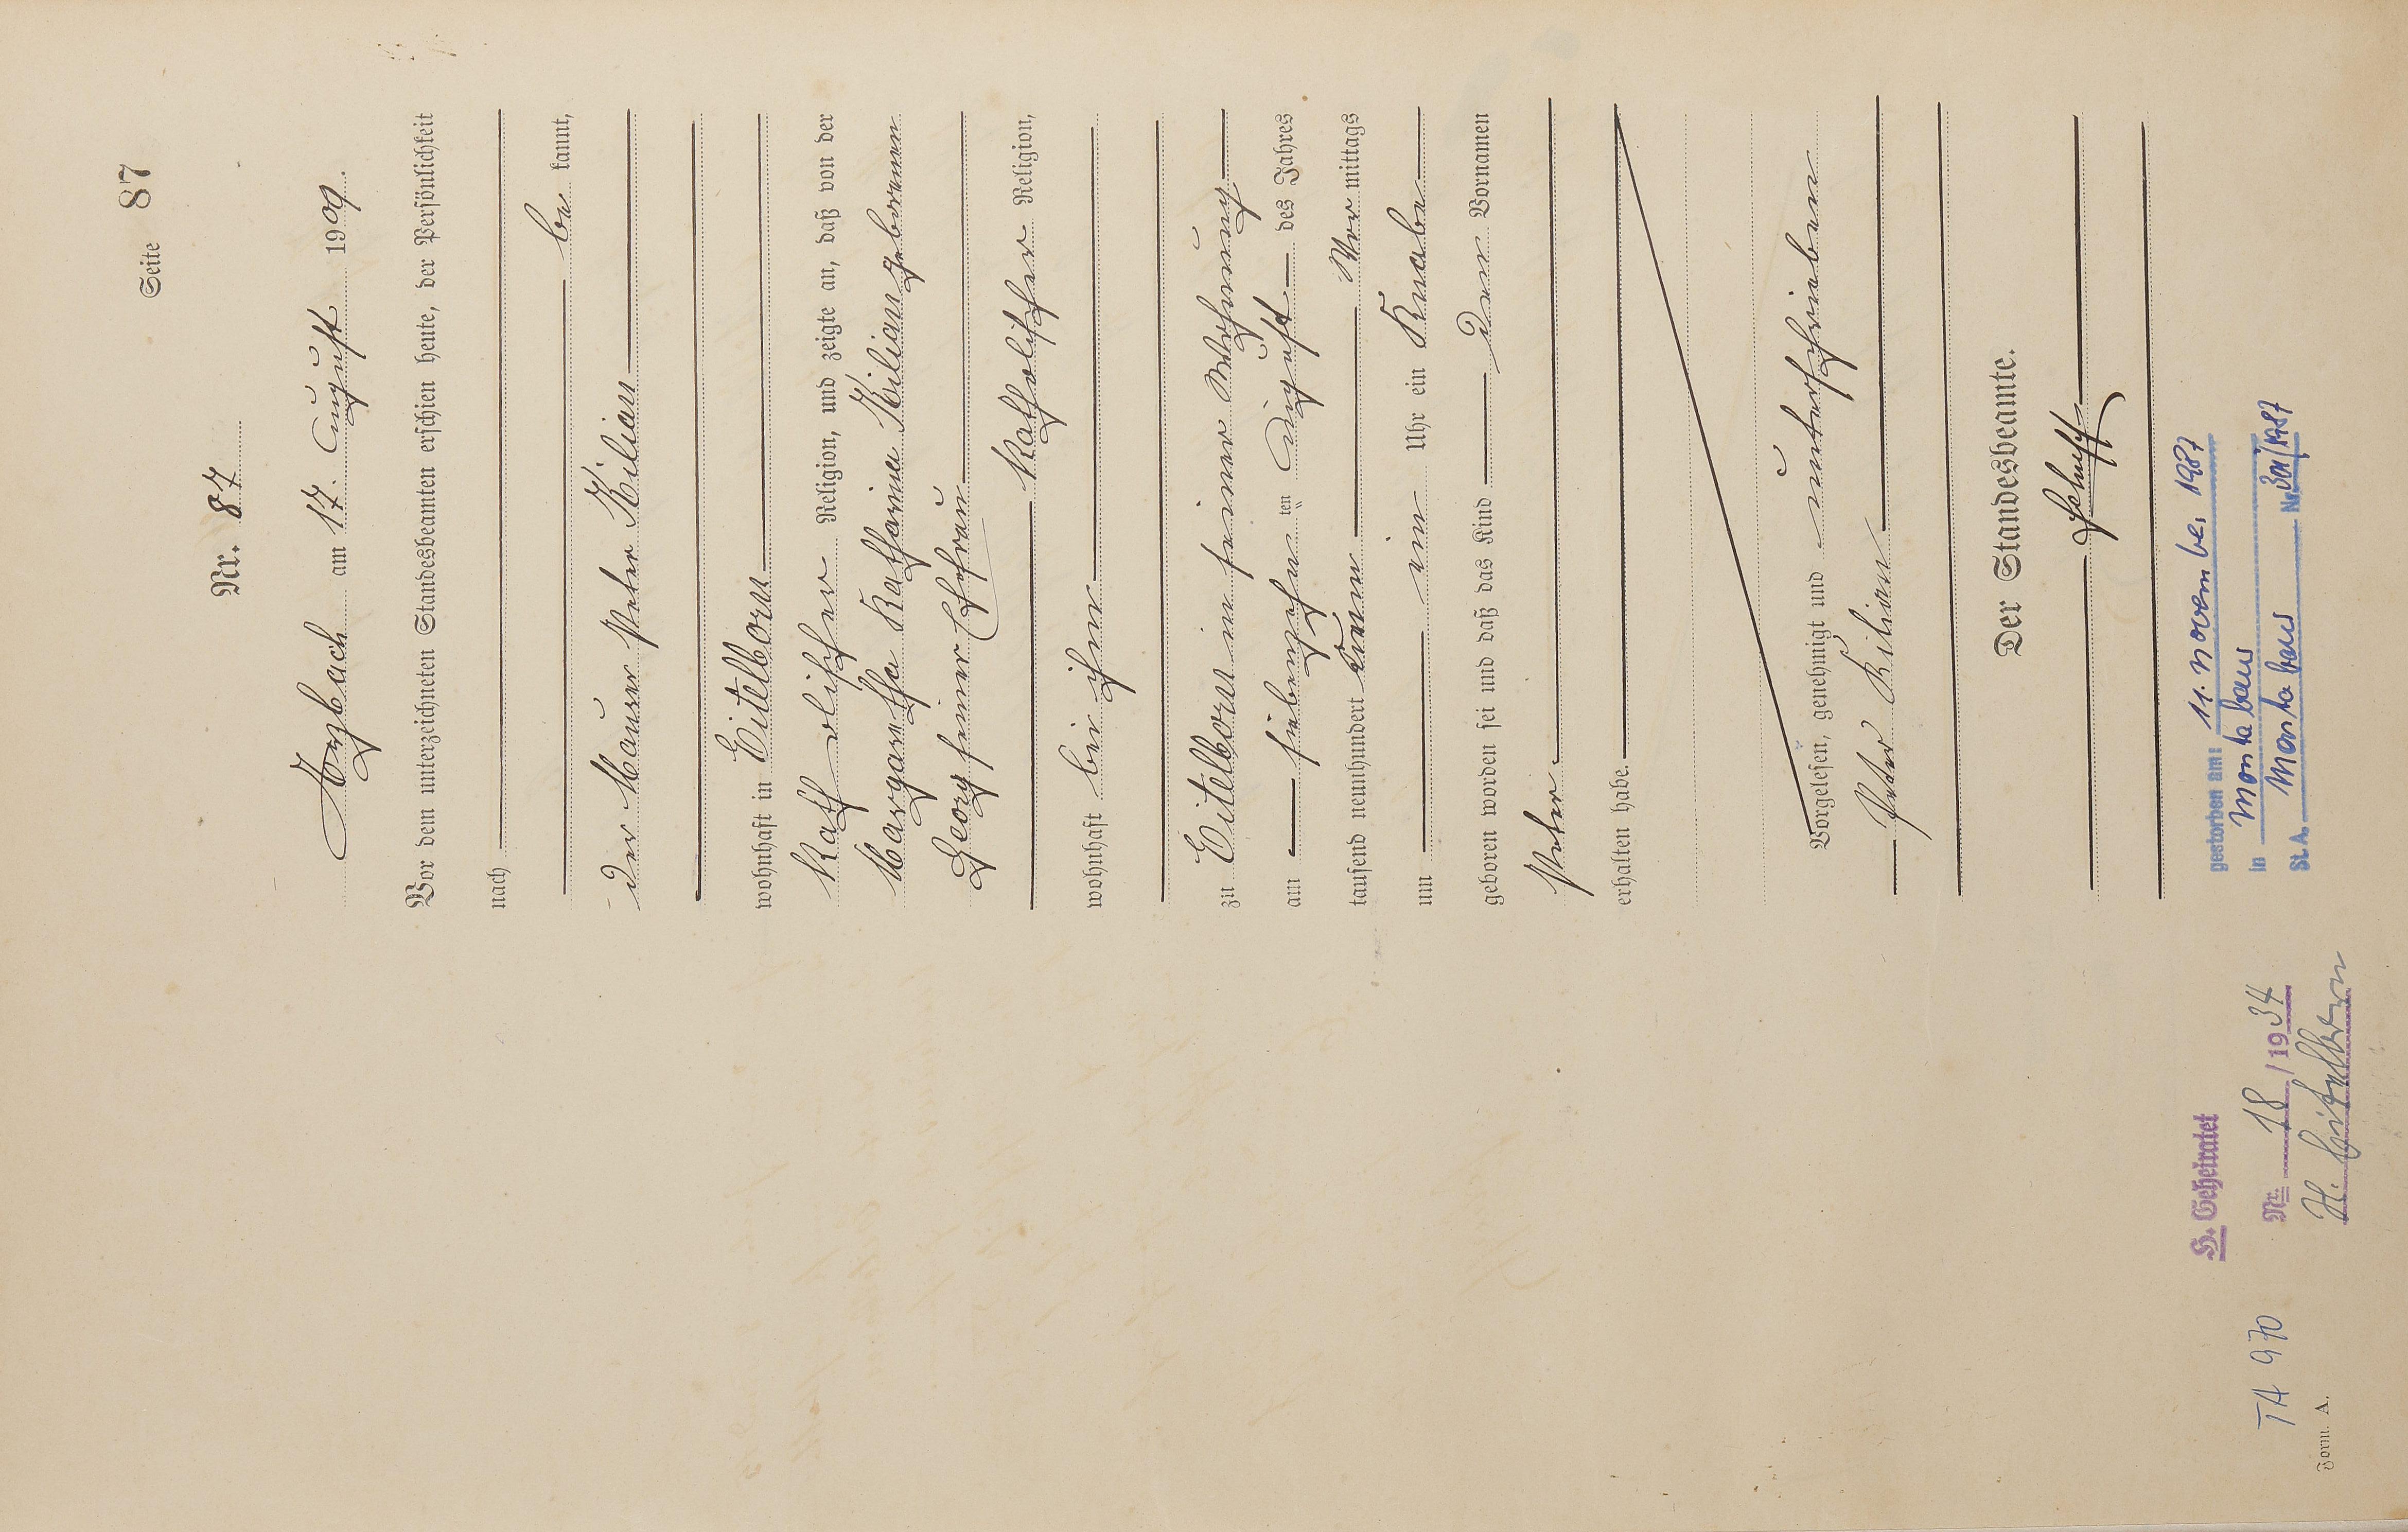 Seite 87
Nr. 87
Arzbach am 17. August 1909.
Vor dem unterzeichneten Standesbeamten erschien heute, der Persönlichkeit
nach
be kannt,
der Maurer Peter Kilian
wohnhaft in Eitelborn
katholischer Religion, und zeigte an, daß von der
Margaretha Katharina Kilian geborenen
Georg seiner Ehefrau
katholischer Religion,
wohnhaft bei ihm
zu Eitelborn in seiner Wohnung
am siebenzehn ten August des Jahres
tausend neunhundert neun Vor mittags
um ein Uhr ein Knabe
geboren worden sei und daß das Kind den Vornamen
Peter
erhalten habe.
Vorgelesen, genehmigt und unterschrieben
Peter Kilian
Der Standesbeamte.
gestorben am: 11. November 1987
in Montabaur
St. A. Montabaur Nr. 301/1987
H. Geheiratet
Nr. 18/1934
St. Eitelborn
TA 970
Form. A.